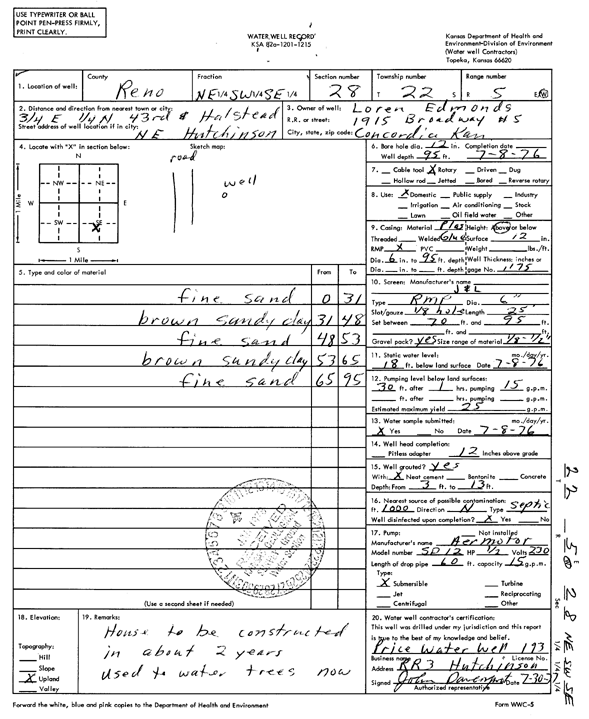 USE TYPEWRITER OR BALL
POINT PEN-PRESS FIRMLY,
PRINT CLEARLY.
WATER WELL RECORD
KSA 82a-1201-1215
Kansas Department of Health and
Environment-Division of Environment
(Water well Contractors)
Topeka, Kansas 66620
1. Location of well: County Reno Fraction NE 1/4 SW 1/4 SE 1/4 Section number 28 Township number T 22 S Range number R 5 E/W
2. Distance and direction from nearest town or city: 3/4 E 1/4 N 43rd & Halstead
Street address of well location if in city: NE Hutchinson
3. Owner of well: Loren Edmonds
R.R. or street: 1915 Broadway #5
City, state, zip code: Concordia Kan
4. Locate with "X" in section below: Sketch map:
N
road
NW NE
well
W E
SW SE
X
S
1 Mile
1 Mile
5. Type and color of material From To
fine sand 0 31
brown sandy clay 31 48
fine sand 48 53
brown sandy clay 53 65
fine sand 65 95
(Use a second sheet if needed)
6. Bore hole dia. 12 in. Completion date
Well depth 95 ft. 7-8-76
7. Cable tool X Rotary Driven Dug
Hollow rod Jetted Bored Reverse rotary
8. Use: X Domestic Public supply Industry
Irrigation Air conditioning Stock
Lawn Oil field water Other
9. Casing: Material Plas Height: Above or below
Threaded Welded Glue Surface 12 in.
RMP X PVC Weight lbs./ft.
Dia. 6 in. to 95 ft. depth Well Thickness: inches or
Dia. in. to ft. depth gage No. .175
10. Screen: Manufacturer's name
J & L
Type RMP Dia. 6"
Slot/gauze 1/8 hole Length 25'
Set between 70 ft. and 95 ft.
ft. and ft.
Gravel pack? yes Size range of material 1/8-1/2"
11. Static water level: mo./day/yr.
18 ft. below land surface Date 7-8-76
12. Pumping level below land surfaces:
30 ft. after 1 hrs. pumping 15 g.p.m.
ft. after hrs. pumping g.p.m.
Estimated maximum yield 25 g.p.m.
13. Water sample submitted: mo./day/yr.
X Yes No Date 7-8-76
14. Well head completion:
Pitless adapter 12 Inches above grade
15. Well grouted? yes
With: X Neat cement Bentonite Concrete
Depth: From 3 ft. to 13 ft.
16. Nearest source of possible contamination:
ft. 1000 Direction N Type septic
Well disinfected upon completion? X Yes No
17. Pump: Not installed
Manufacturer's name Aermotor
Model number SD12 HP 1/2 Volts 230
Length of drop pipe 60 ft. capacity 15 g.p.m.
Type:
X Submersible Turbine
Jet Reciprocating
Centrifugal Other
18. Elevation:
Topography:
Hill
Slope
X Upland
Valley
19. Remarks:
House to be constructed
in about 2 years
Used to water trees now
20. Water well contractor's certification:
This well was drilled under my jurisdiction and this report
is true to the best of my knowledge and belief.
Price Water Well 193
Business name License No.
Address RR3 Hutchinson
Signed John Davenport Date 7-30-77
Authorized representative
Forward the white, blue and pink copies to the Department of Health and Environment
Form WWC-5
T 22 R 5 E Sec 28 1/4 1/4 1/4 NE SW SE